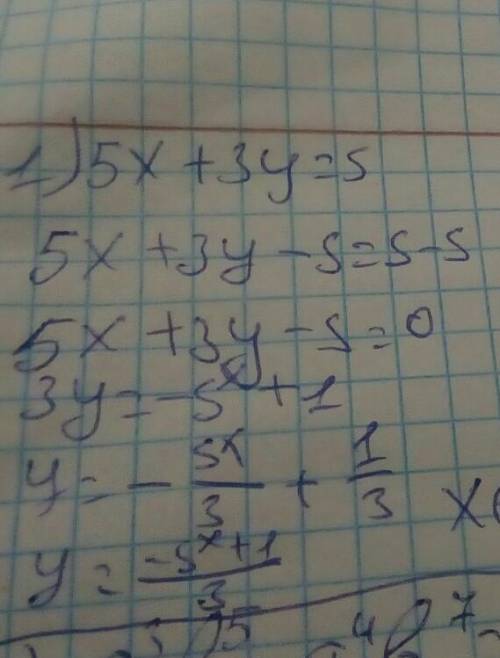 1) 5x + 3y = 5
5x + 3y - 5 = 5 - 5
5x + 3y - 5 = 0
3y = -5x + 1
y = - 5x/3 + 1/3
x(
y = -5x+1/3